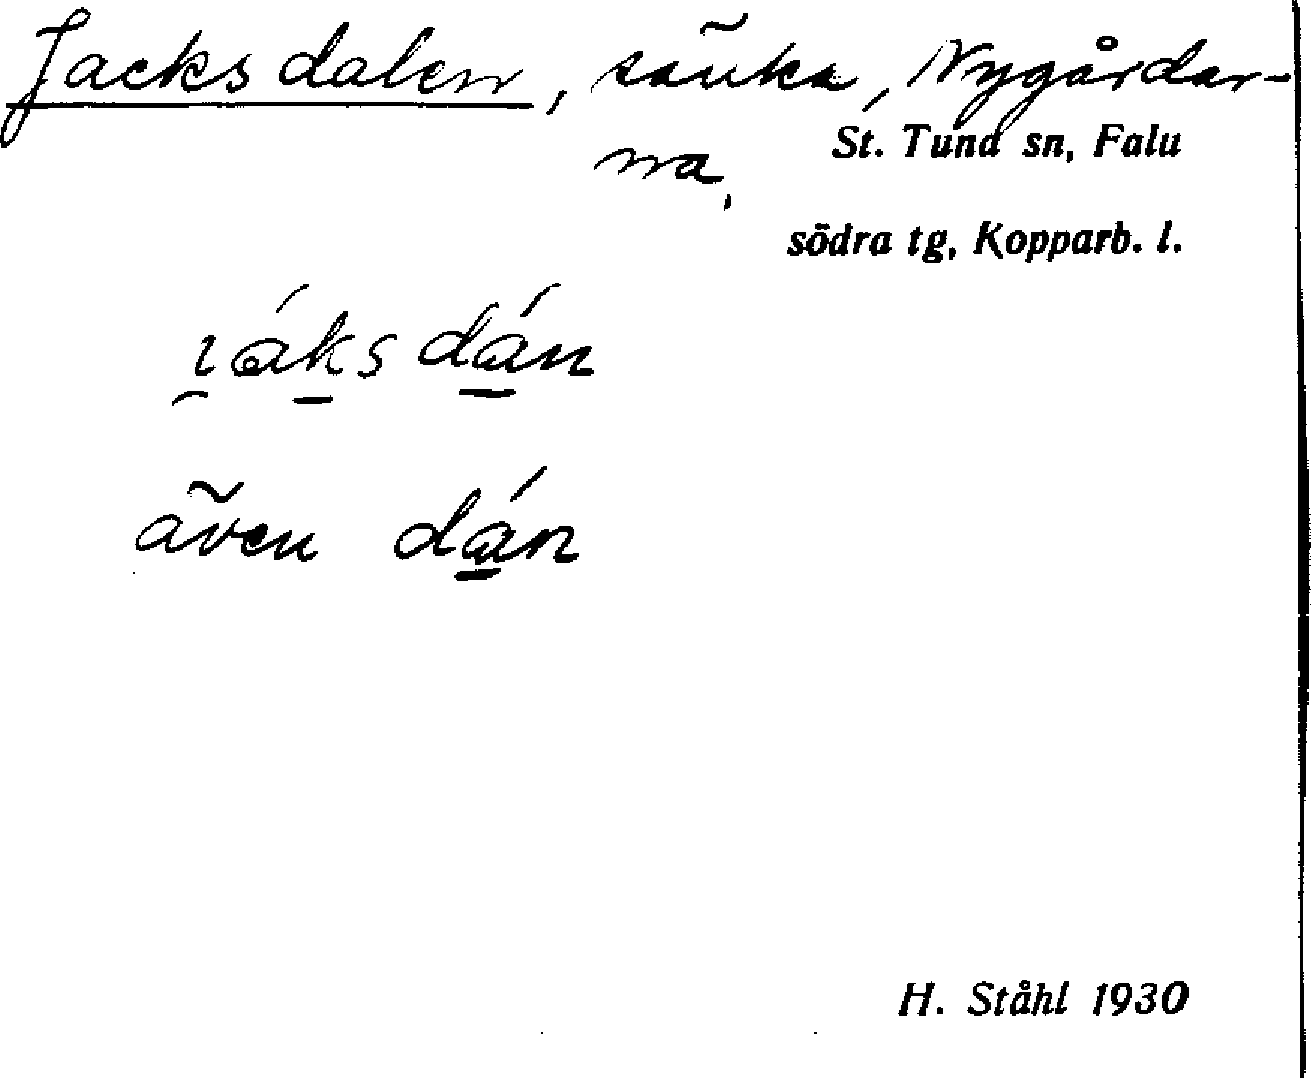 Jacksdalen, sänka, Nygårdar-
na,
St. Tuna sn, Falu
södra tg, Kopparb. l.
även dán
H. Ståhl 1930